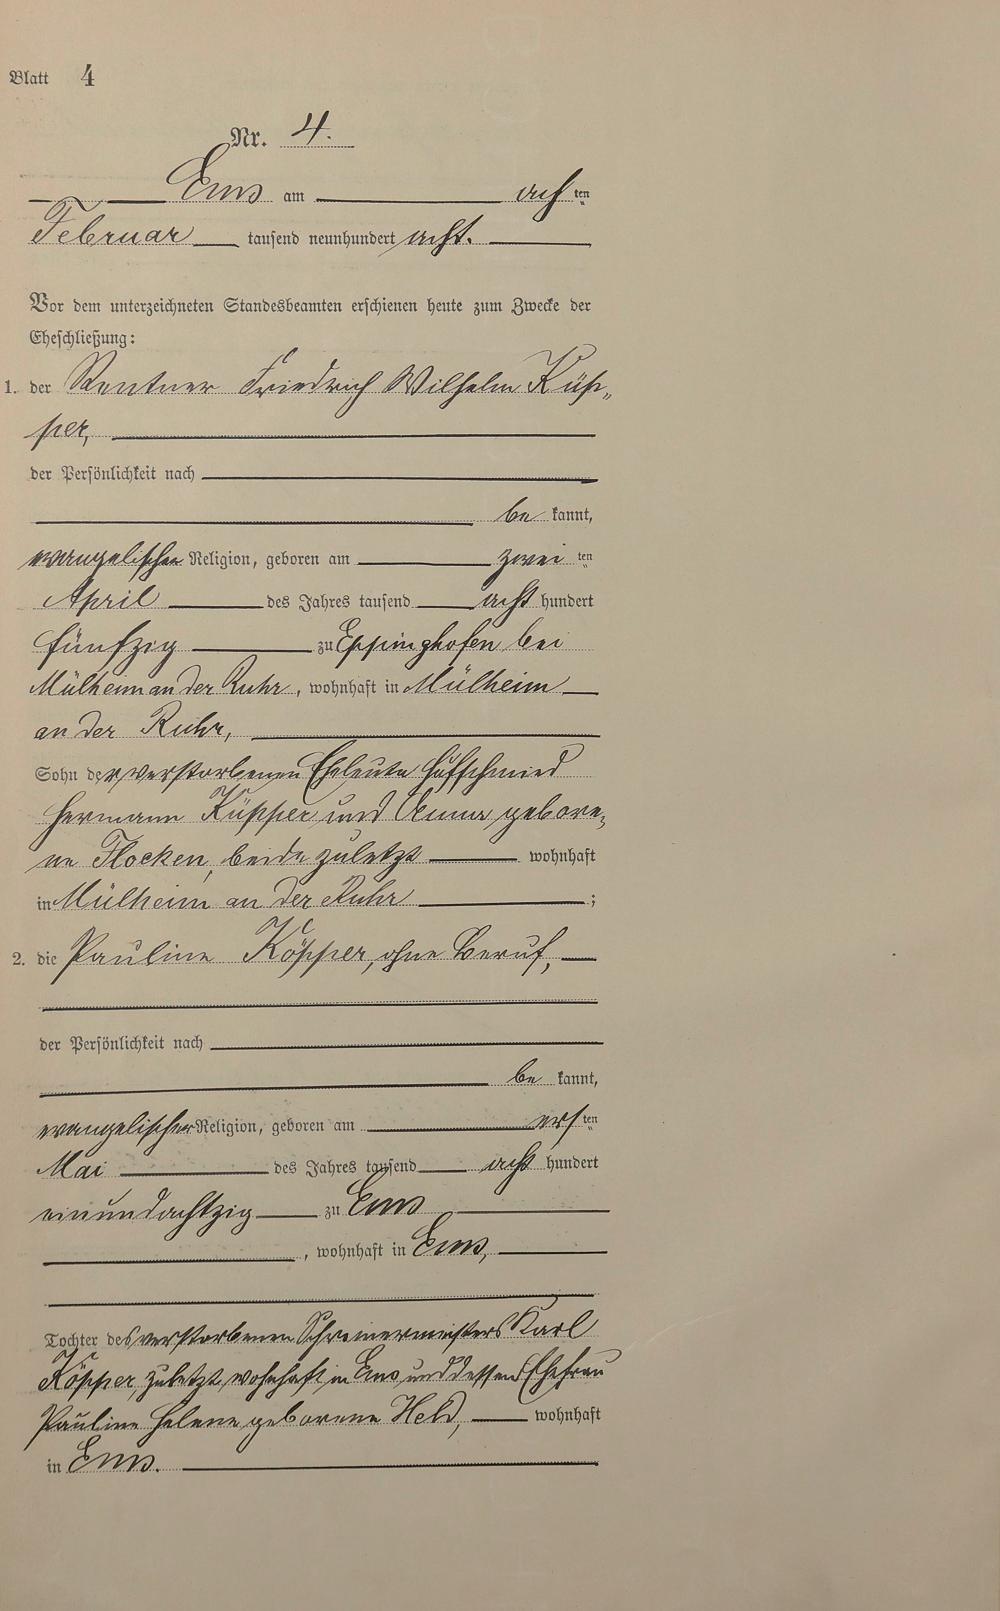 Blatt 4
Nr. 4.
Ems am achten
Februar tausend neunhundert acht.
Vor dem unterzeichneten Standesbeamten erschienen heute zum Zwecke der
Eheschließung:
1. der Rentner Friedrich Wilhelm Küp„
per,
der Persönlichkeit nach
be kannt,
evangelischer Religion, geboren am zweiten
April des Jahres tausend acht hundert
fünfzig zu Eppinghofen bei
Mülheim an der Ruhr, wohnhaft in Mülheim
an der Ruhr,
Sohn der verstorbenen Eheleute Hufschmied
Hermann Küpper und Anna gebore„
ne Flocken, beide zuletzt wohnhaft
in Mülheim an der Ruhr ;
2. die Pauline Köpper, ohne Beruf,
der Persönlichkeit nach
be kannt,
evangelischer Religion, geboren am ersten
Mai des Jahres tausend acht hundert
einundachtzig zu Ems
, wohnhaft in Ems,
Tochter des verstorbenen Schreinermeisters Karl
Köpper, zuletzt wohnhaft in Ems und dessen Ehefrau
Pauline Helene geborene Held, wohnhaft
in Ems.